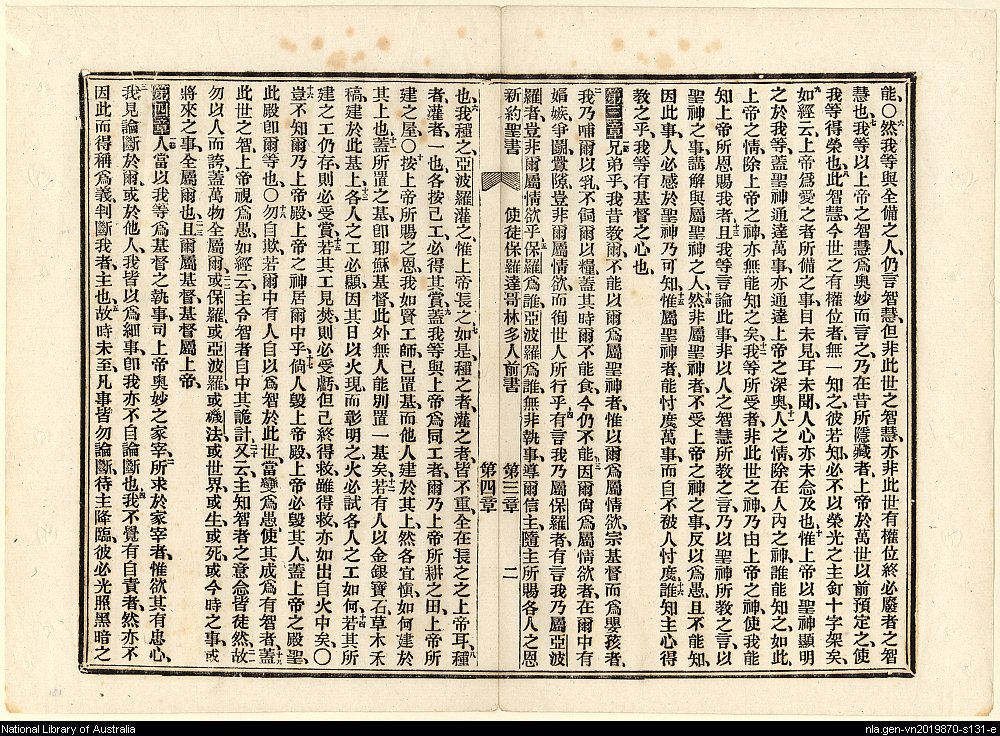 能、〇六然我等與全備之人、仍言智慧、但非此世之智慧、亦非此世有權位終必廢者之智
慧也、七我等以上帝之智慧爲奧妙而言之、乃在昔所隱藏者、上帝於萬世以前預定之、使
我等得榮也、八此智慧、今世之有權位者、無一知之、彼若知、必不以榮光之主釘十字架矣、
九如經云、上帝爲愛之者所備之事、目未見、耳未聞、人心亦未念及也、十惟上帝以聖神顯明
之於我等、蓋聖神通達萬事、亦通達上帝之深奧、十一人之情、除在人內之神、誰能知之、如此、
上帝之情、除上帝之神、亦無能知之矣、十二我等所受者、非此世之神、乃由上帝之神、使我能
知上帝所恩賜我者、十三且我等言論此事、非以人之智慧所教之言、乃以聖神所教之言、以
聖神之事、講解與屬聖神之人、十四然非屬聖神者、不受上帝之神之事、反以爲愚、且不能知、
因此事、人必感於聖神乃可知、十五惟屬聖神者、能忖度萬事、而自不被人忖度、十六誰知主心得
教之乎、我等有基督之心也、
第三章一兄弟乎、我昔教爾、不能以爾爲屬聖神者、惟以爾爲屬情欲、宗基督而爲嬰孩者、
二我乃哺爾以乳、不飼爾以糧、蓋其時爾不能食、今仍不能、三因爾尙爲屬情欲者、在爾中有
娼嫉爭鬭釁隙、豈非爾屬情欲、而徇世人所行乎、四有言我乃屬保羅者、有言我乃屬亞波
羅者、豈非爾屬情欲乎、五保羅爲誰、亞波羅爲誰、無非執事、導爾信主、隨主所賜各人之恩
新約聖書 使徒保羅達哥林多人前書 第三章 第四章 二
也、六我種之、亞波羅灌之、惟上帝長之、七如是、種之者、灌之者、皆不重、全在長之之上帝耳、八種
者灌者、一也、各按己工、必得其賞、九蓋我等與上帝爲同工者、爾乃上帝所耕之田、上帝所
建之屋、〇十按上帝所賜之恩、我如賢工師、已置基、而他人建於其上、然各宜愼如何建於
其上也、十一蓋所置之基、卽耶穌基督、此外無人能別置一基矣、十二若有人以金銀寶石草木禾
稿、建於此基上、十三各人之工必顯、因其日以火現而彰明之、火必試各人之工如何、十四若其所
建之工仍存、則必受賞、十五若其工見焚、則必受虧、但己終得救、雖得救、亦如出自火中矣、〇
十六豈不知爾乃上帝殿、上帝之神居爾中乎、十七倘人毀上帝殿、上帝必毀其人、蓋上帝之殿聖、
此殿卽爾等也、〇十八勿自欺、若爾中有人自以爲智於此世、當變爲愚、使其成爲有智者、十九蓋
此世之智、上帝視爲愚、如經云、主令智者自中其詭計、二十又云、主知智者之意念皆徒然、二一故
勿以人而誇、蓋萬物全屬爾、二二或保羅、或亞波羅、或磯法、或世界、或生、或死、或今時之事、或
將來之事、全屬爾也、二三且爾屬基督、基督屬上帝、
第四章一人當以我等爲基督之執事、司上帝奧妙之家宰、二所求於家宰者、惟欲其有忠心、
三我見論斷於爾、或於他人、我皆以爲細事、卽我亦不自論斷也、四我不覺有自責者、然亦不
因此而得稱爲義、判斷我者、主也、五故時未至、凡事皆勿論斷、待主降臨、彼必光照黑暗之
National Library of Australia
nla.gen-vn2019870-s131-e